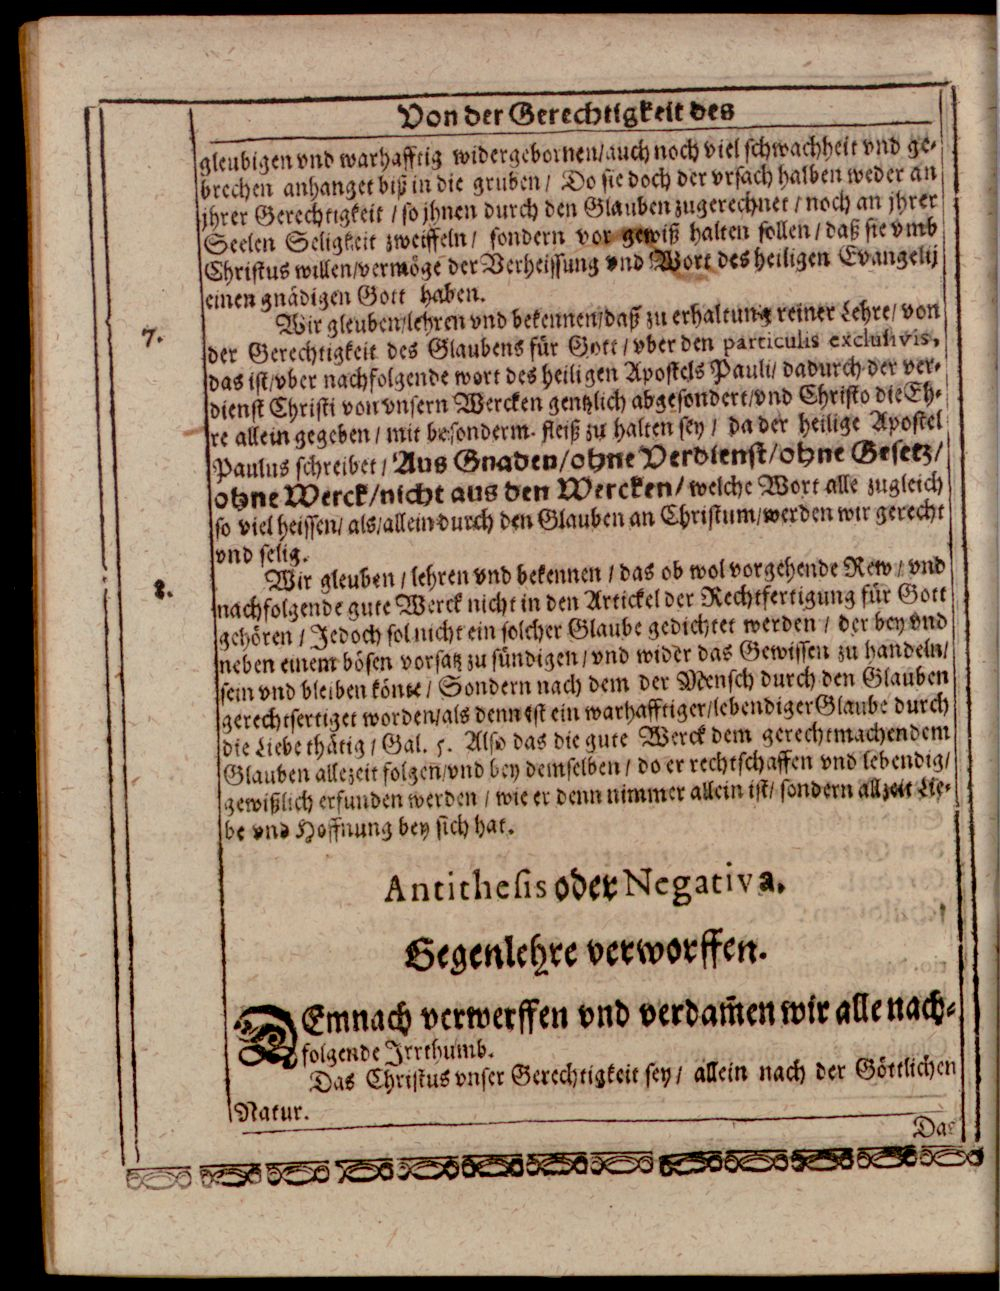 Von der Gerechtigkeit des
gleubigen vnd warhafftig widergebornen/auch noch viel schwachheit vnd ge-
brechen anhanget biß in die gruben/ Do sie doch der vrsach halben weder an
jhrer Gerechtigkeit / so jhnen durch den Glauben zugerechnet / noch an jhrer
Seelen Seligkeit zweiffeln/ sondern vor gewiß halten sollen / daß sie vmb
Christus willen/vermöge der Verheissung vnd Wort des heiligen Evangelij
einen gnädigen Gott haben.
7.
Wir gleuben/lehren vnd bekennen/daß zu erhaltung reiner Lehre/ von
der Gerechtigkeit des Glaubens für Gott / vber den particulis exclusivis,
das ist/vber nachfolgende wort des heiligen Apostels Pauli/ dadurch der ver-
dienst Christi von vnsern Wercken gentzlich abgesondert/vnd Christo die Eh-
re allein gegeben / mit besonderm fleiß zu halten sey / da der heilige Apostel
Paulus schreibet / Aus Gnaden/ohne Verdienst/ohne Gesetz/
ohne Werck/nicht aus den Wercken/ welche Wort alle zugleich
so viel heissen/ als/allein durch den Glauben an Christum/werden wir gerecht
vnd selig.
8.
Wir gleuben / lehren vnd bekennen / das ob wol vorgehende Rew / vnd
nachfolgende gute Werck nicht in den Artickel der Rechtfertigung für Gott
gehören / Jedoch sol nicht ein solcher Glaube gedichtet werden / der bey vnd
neben einem bösen vorsatz zu sündigen / vnd wider das Gewissen zu handeln/
sein vnd bleiben könte / Sondern nach dem der Mensch durch den Glauben
gerechtfertiget worden/als denn ist ein warhafftiger/lebendiger Glaube durch
die Liebe thätig / Gal. 5. Also das die gute Werck dem gerechtmachendem
Glauben allezeit folgen/vnd bey demselben / do er rechtschaffen vnd lebendig/
gewißlich erfunden werden / wie er denn nimmer allein ist/ sondern allzeit Lie-
be vnd Hoffnung bey sich hat.
Antithesis oder Negativa.
Gegenlehre verworffen.
DEmnach verwerffen vnd verdam̃en wir alle nach-
folgende Irrthumb.
Das Christus vnser Gerechtigkeit sey / allein nach der Göttlichen
Natur.
Das